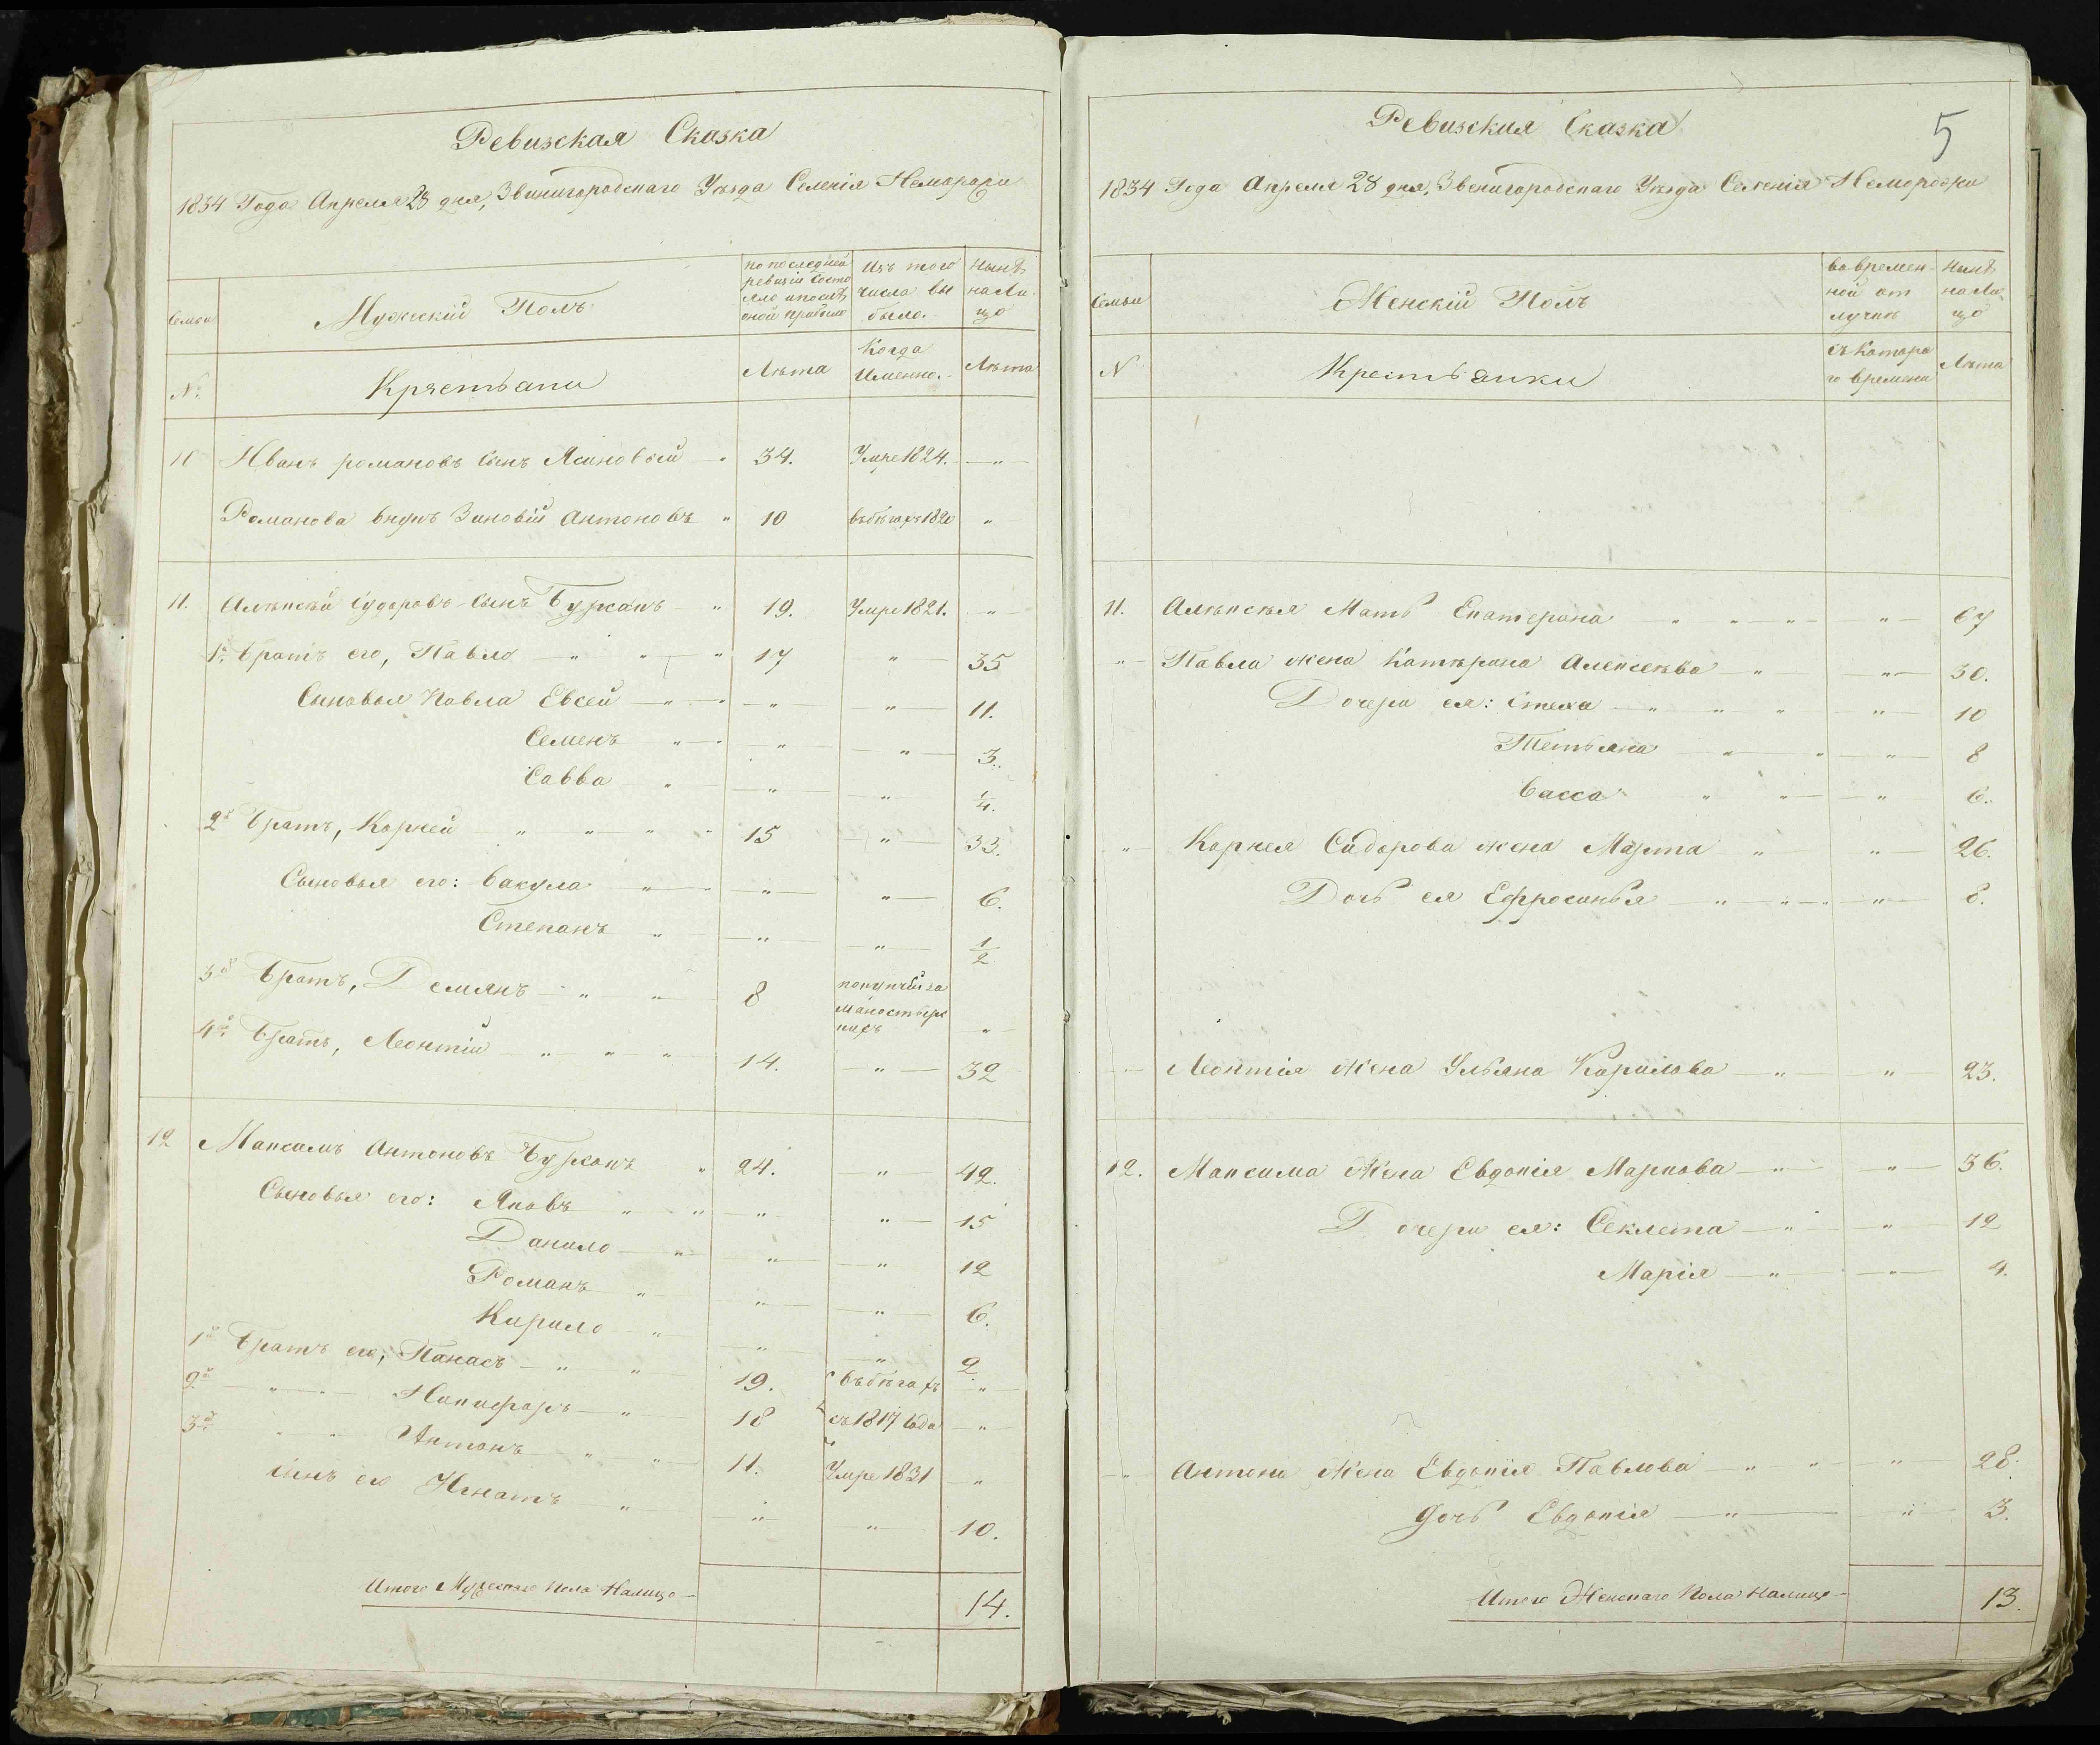 Ревизская Сказка
1834 Года Апреля 28 дня, Звинигородскаго Уѣзда Селенія Неморожи
Семьи
Мужескій Полъ
по последней ревизіи состояло и после оной прибыло
Изъ того числа выбыло.
Нынѣ на лицо
№:
Крястьяни
Лѣта
Когда Именно.
Лѣта
10 Иванъ романовъ сынъ Ясиновый " 34. Умре 1824. "
Романова внукъ Зиновій Антоновъ " 10 въ бѣгахъ 1820 "
11. Алѣксѣй Сидоровъ сынъ Буржанъ " 19. Умре 1821. "
1й. братъ его, Павло " " " 17 " 35
Сыновья Павла Евсей " " " " 11.
Семенъ " " " " 3.
Савва " " " 1/4.
2й братъ, Корней " " " " 15 " 33.
Сыновья его: Вакула " " " " 6.
Степанъ " " " 1/2
3й братъ, Демянъ " " 8 "
4й братъ, Леонтій " " " 14. " 32
12 Максимъ Антоновъ Буржанъ " 24. " 42.
Сыновья его: Яковъ " " " " 15
Данило " " " 12
Романъ " " " 6.
Кирило " " " 2
1й братъ его, Панасъ " " 19. въ бѣгахъ "
2й " Никифоръ " 18 съ 1817 Года "
3й " Антонъ " " 11. Умре 1831 "
сынъ его Игнатъ " " " 10.
Итого Мужеска пола Налицо 14.
Ревизская Сказка
5
1834 Года Апреля 28 дня, Звенигородскаго Уѣзда Селенія Неморожи
Семьи
Женскій Полъ
во временной отлучке
Нынѣ на лицо
№
Крестьянки
съ Котораго времени
Лѣта
11. Алѣксѣя Мать Екатерина " " " " 67
" Павла жена Катѣрина Алексеѣва " " 30.
Дочери ея: Стеха " " " " 10
Тетьяна " " " 8
Васса " " " 6.
" Корнея Сидорова жена Марта " " 26.
Дочь ея Ефросинья " " " 8.
Леонтія жена Ульяна Карилова " " 23.
12. Максима Жена Евдокія Маркова " " 36.
Дочери ея: Секлета " " 12
Марія " " 4.
" Антона жена Евдокія Павлова " " " 28.
дочь Евдокія " " 3.
Итого Женскаго Пола Налицо 13.